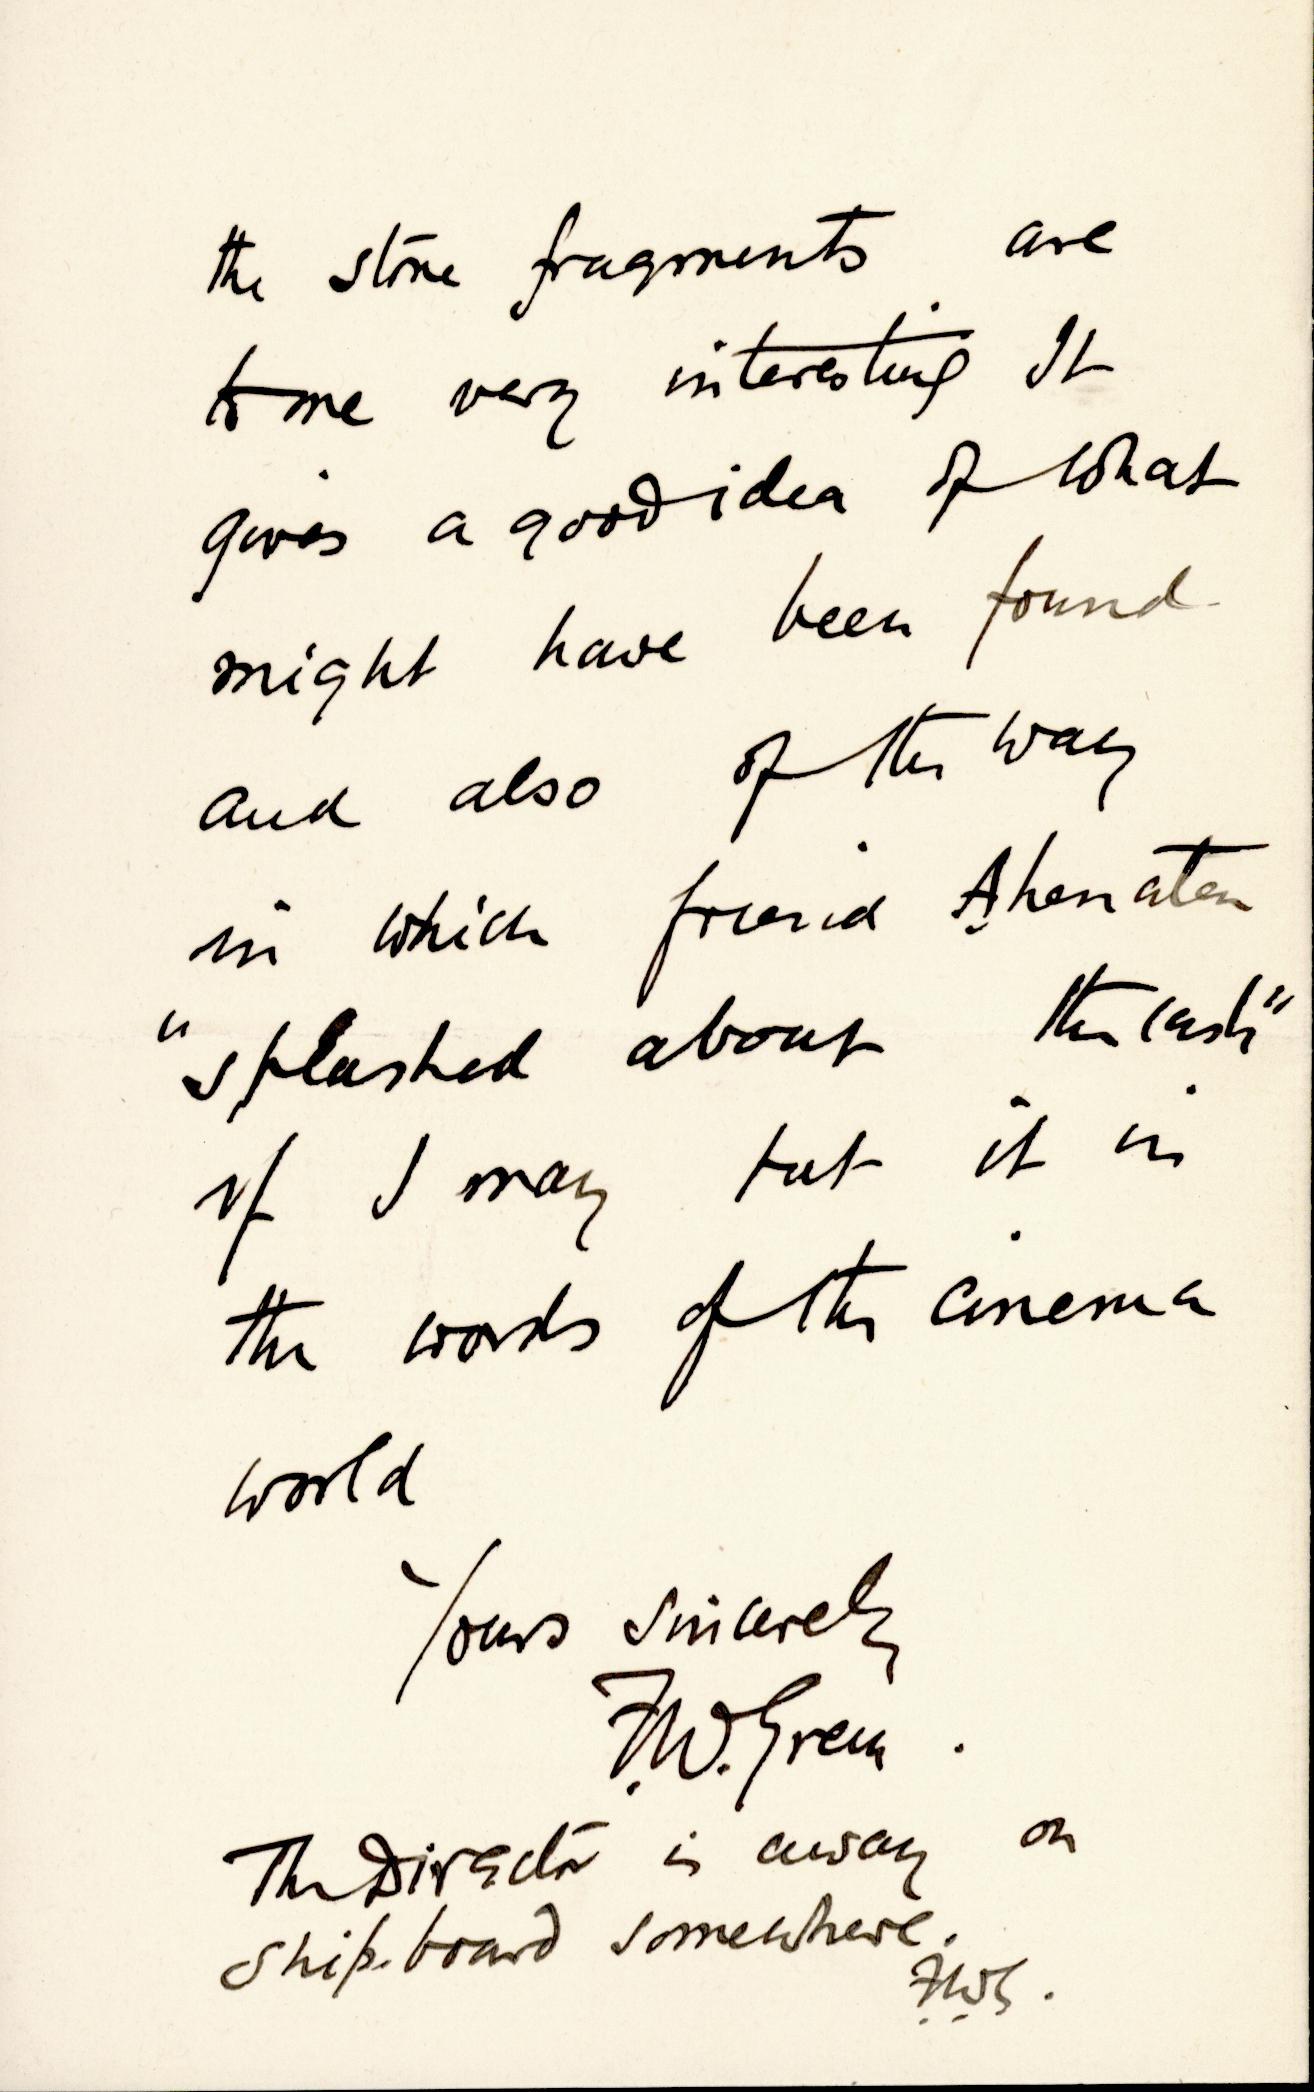 the stone fragments are
to me very interesting It
gives a good idea of what
might have been found
and also of the way
in which friend Aḥenaten
"splashed about the cash"
if I may put it in
the words of the cinema
world
Yours sincerely
F.W. Green.
The Director is away on
ship-board somewhere.
F.W.G.